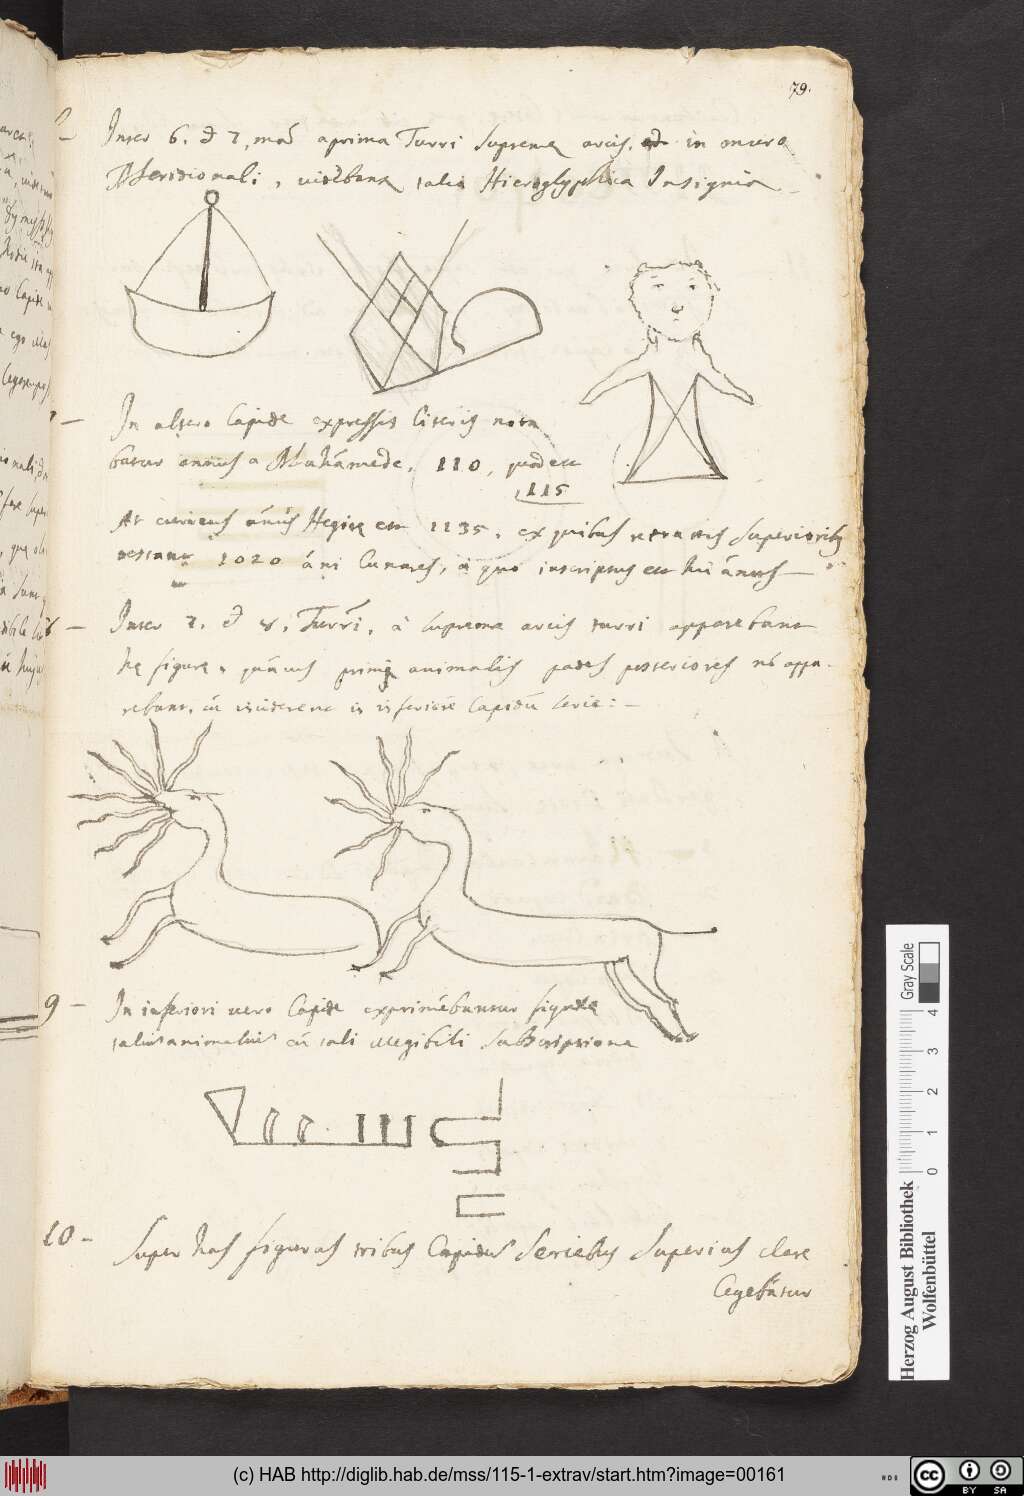 79.
Inter 6. et 7, mā a prima Turri Supremæ arcis, in muro
Meridionali, videbant talia Hieroglyphica Insignia
7 - In altero lapide expressis literis nota
batur annus a Muhāmede, 110, quod est
115
At currens āñus Hegiræ est 1135, ex quibus retractis superiorib9
restant 1020 āni Lunares, a quo inscriptus est hic ānus
8 - Inter 7. et 8. Turrī, à suprema arcis turri apparebant
hę figurę, quāvis primi animalis pedes posteriores nō appa-
rebant, cū viderent in inferiore lapidū serie: -
9 - In inferiori vero lapide exprimēbuntur figuræ
talium animalium cū tali illegibili Subscriptione
10 - Super has figuras tribus lapidum Seriebus Superius clare
legebātur
Gray Scale
4
3
2
1
0
Herzog August Bibliothek
Wolfenbüttel
(c) HAB http://diglib.hab.de/mss/115-1-extrav/start.htm?image=00161
HAB
cc
BY SA